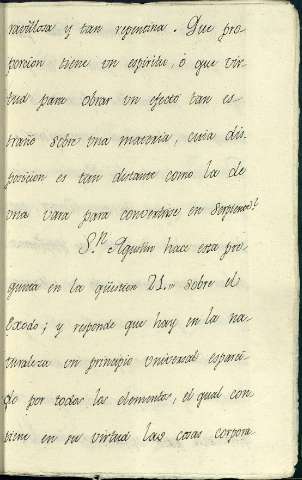 ravillosa y tan repentina. Que pro-
porcion tiene vn espiritu, ó que vir-
tud para obrar vn efecto tan es-
traño sobre vna materia, cuia dis-
posicion es tan distante como la de
vna vara para convertirse en serpiente?
S.n Agustin hace esta pre-
gunta en la qüestion 21.., sobre el
Exodo; y responde que hay en la na-
turaleza vn principio vniversal esparci-
do por todos los elementos, el qual con-
tiene en su virtud las cosas corpora-